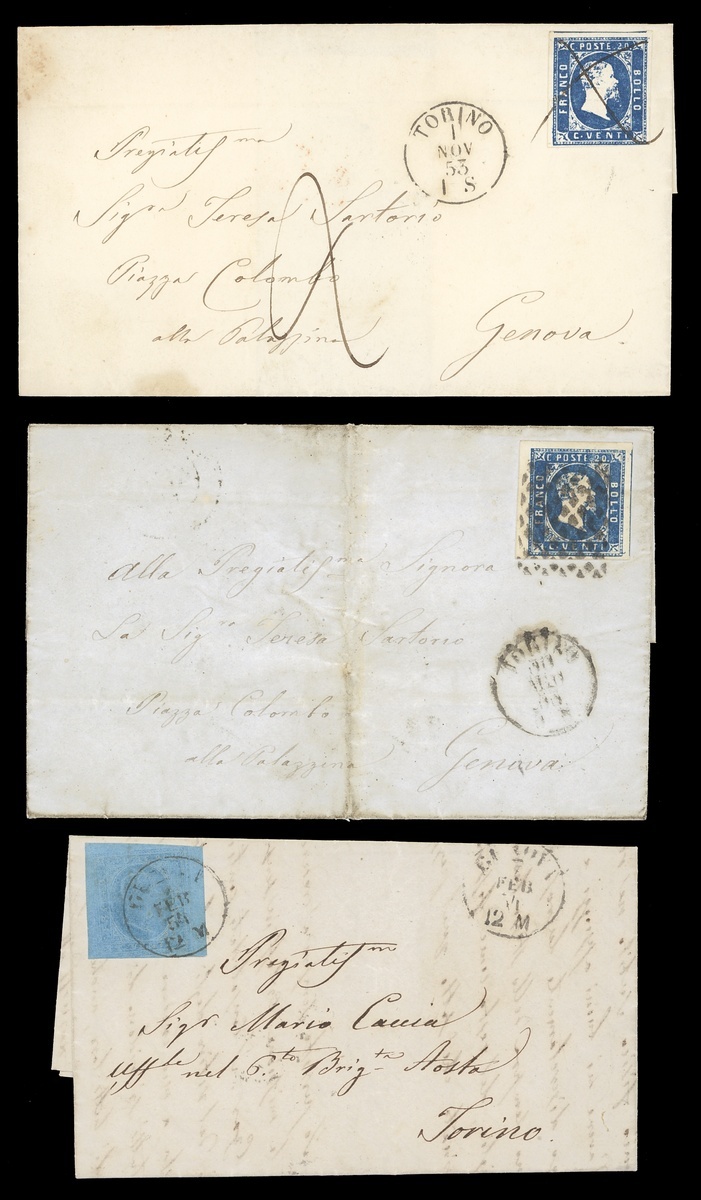 C. POSTE. 20.
FRANCO
BOLLO
C. VENTI
TORINO
1
NOV
53
1 S
Pregiatis ma
Sigra Teresa Sartorio
Piazza Colombo
alla Palazzina
Genova.
C. POSTE. 20.
FRANCO
BOLLO
C. VENTI
TORINO
alla Pregiatis ma Signora
La Sig ra Teresa Sartorio
Piazza Colombo
alla Palazzina
Genova
FEB
12 M
FEB
12 M
Pregiatis mo
Sigr. Mario Caccia
Uff le nel 6. to Brig ta Aosta
Torino.